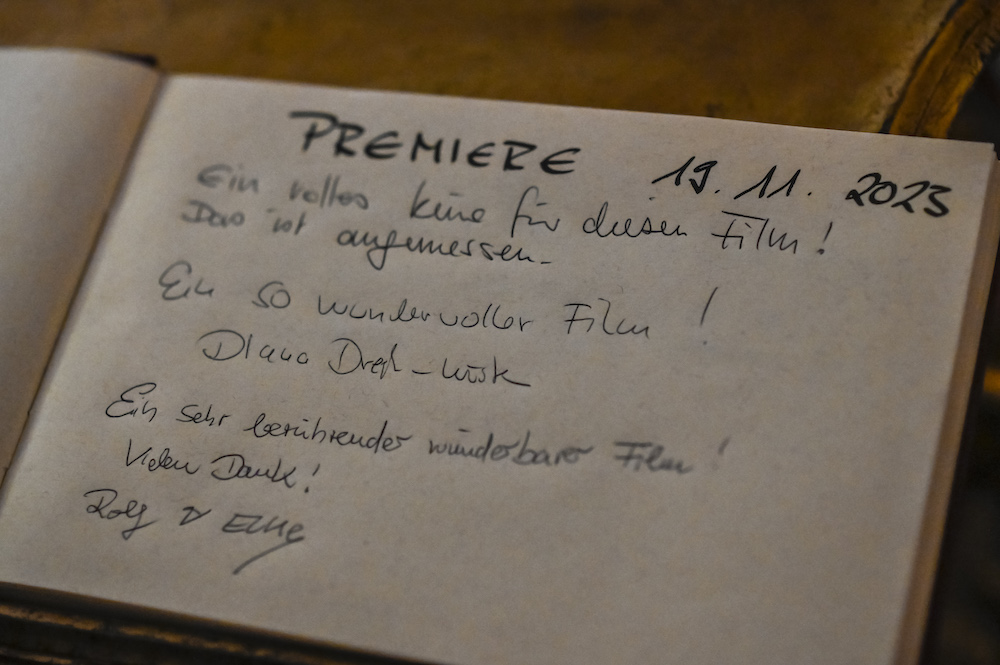 PREMIERE 19. 11. 2023
Ein volles Kino für diesen Film!
Das ist angemessen.
Ein so wundervoller Film !
Diana
Ein sehr berührender wunderbarer Film !
Vielen Dank!
Rolf & Elke